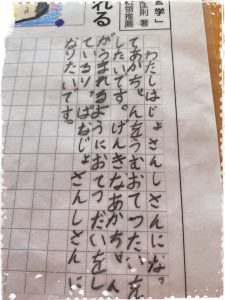 学」
則 著
推薦
れる
わたしはじょさんしさんになっ
てあかちゃんをうむおてつだいを
したいです。げんきなあかちゃん
がうまれるようにおてつだいをし
ているりっぱなじょさんしさんに
なりたいです。